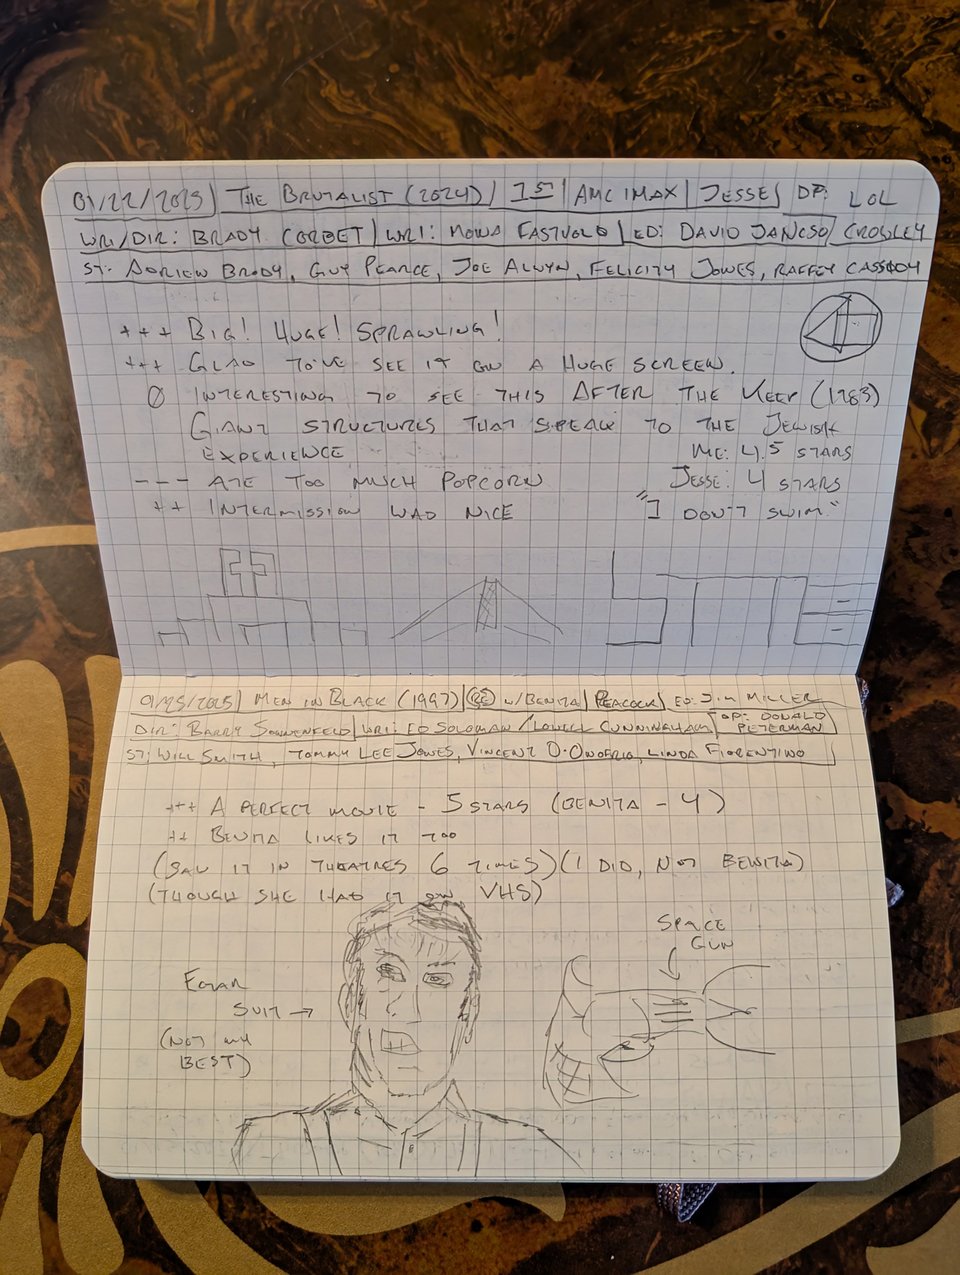 01/22/2025 | THE BRUTALIST (2024) | 1ST | AMC IMAX | JESSE | DP: LOL
WRI/DIR: BRADY CORBET | WRI: MONA FASTVOLD | ED: DAVID JANCSO | CROWLEY
ST: ADRIEN BRODY, GUY PEARCE, JOE ALWYN, FELICITY JONES, RAFFEY CASSIDY
+++ BIG! HUGE! SPRAWLING!
+++ GLAD TO'VE SEE IT ON A HUGE SCREEN.
0 INTERESTING TO SEE THIS AFTER THE KEEP (1983)
GIANT STRUCTURES THAT SPEAK TO THE JEWISH
EXPERIENCE
ME: 4.5 STARS
--- ATE TOO MUCH POPCORN
JESSE: 4 STARS
++ INTERMISSION WAS NICE
"I DON'T SWIM."
01/25/2025 | MEN IN BLACK (1997) | W/BENITA | PEACOCK | ED: JIM MILLER
DIR: BARRY SONNENFELD | WRI: ED SOLOMAN / LOWELL CUNNINGHAM | DP: DONALD
PETERMAN
ST: WILL SMITH, TOMMY LEE JONES, VINCENT D'ONOFRIO, LINDA FIORENTINO
+++ A PERFECT MOVIE - 5 STARS (BENITA - 4)
++ BENITA LIKES IT TOO
(SAW IT IN THEATRES 6 TIMES) (I DID, NOT BENITA)
(THOUGH SHE HAD IT ON VHS)
SPACE
GUN
EDGAR
SUIT →
(NOT MY
BEST)